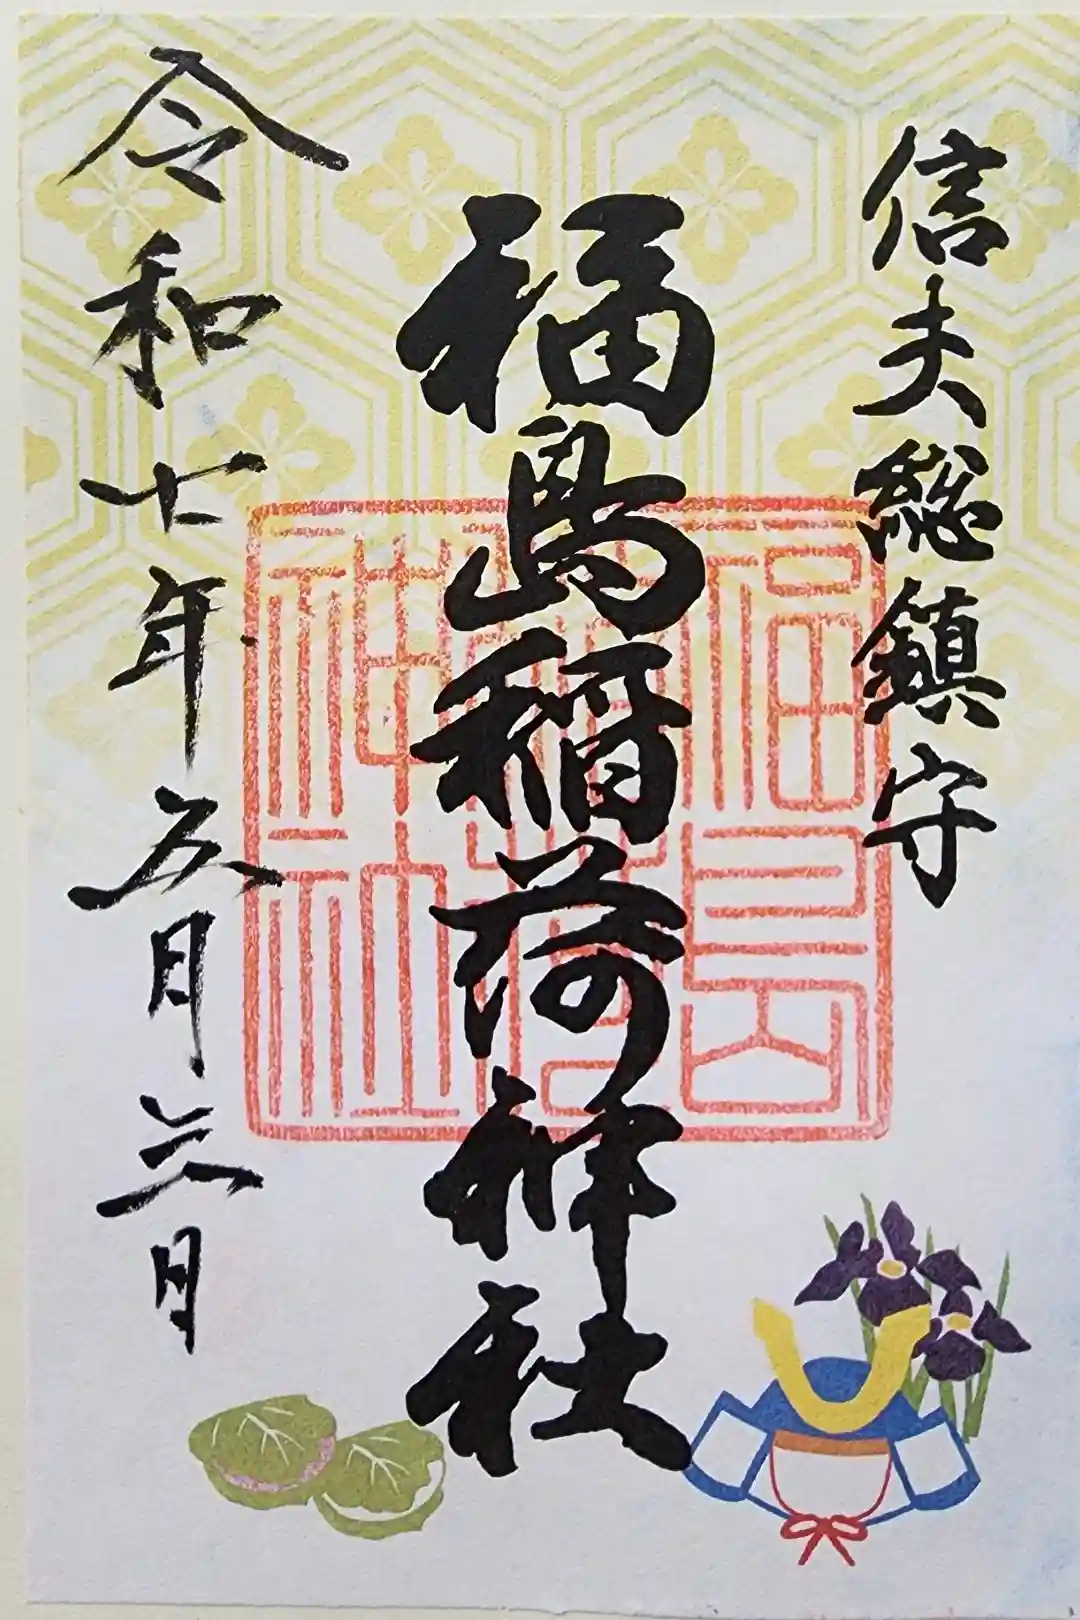 信夫総鎮守
福島稲荷神社
令和七年五月三日
福島稲荷神社